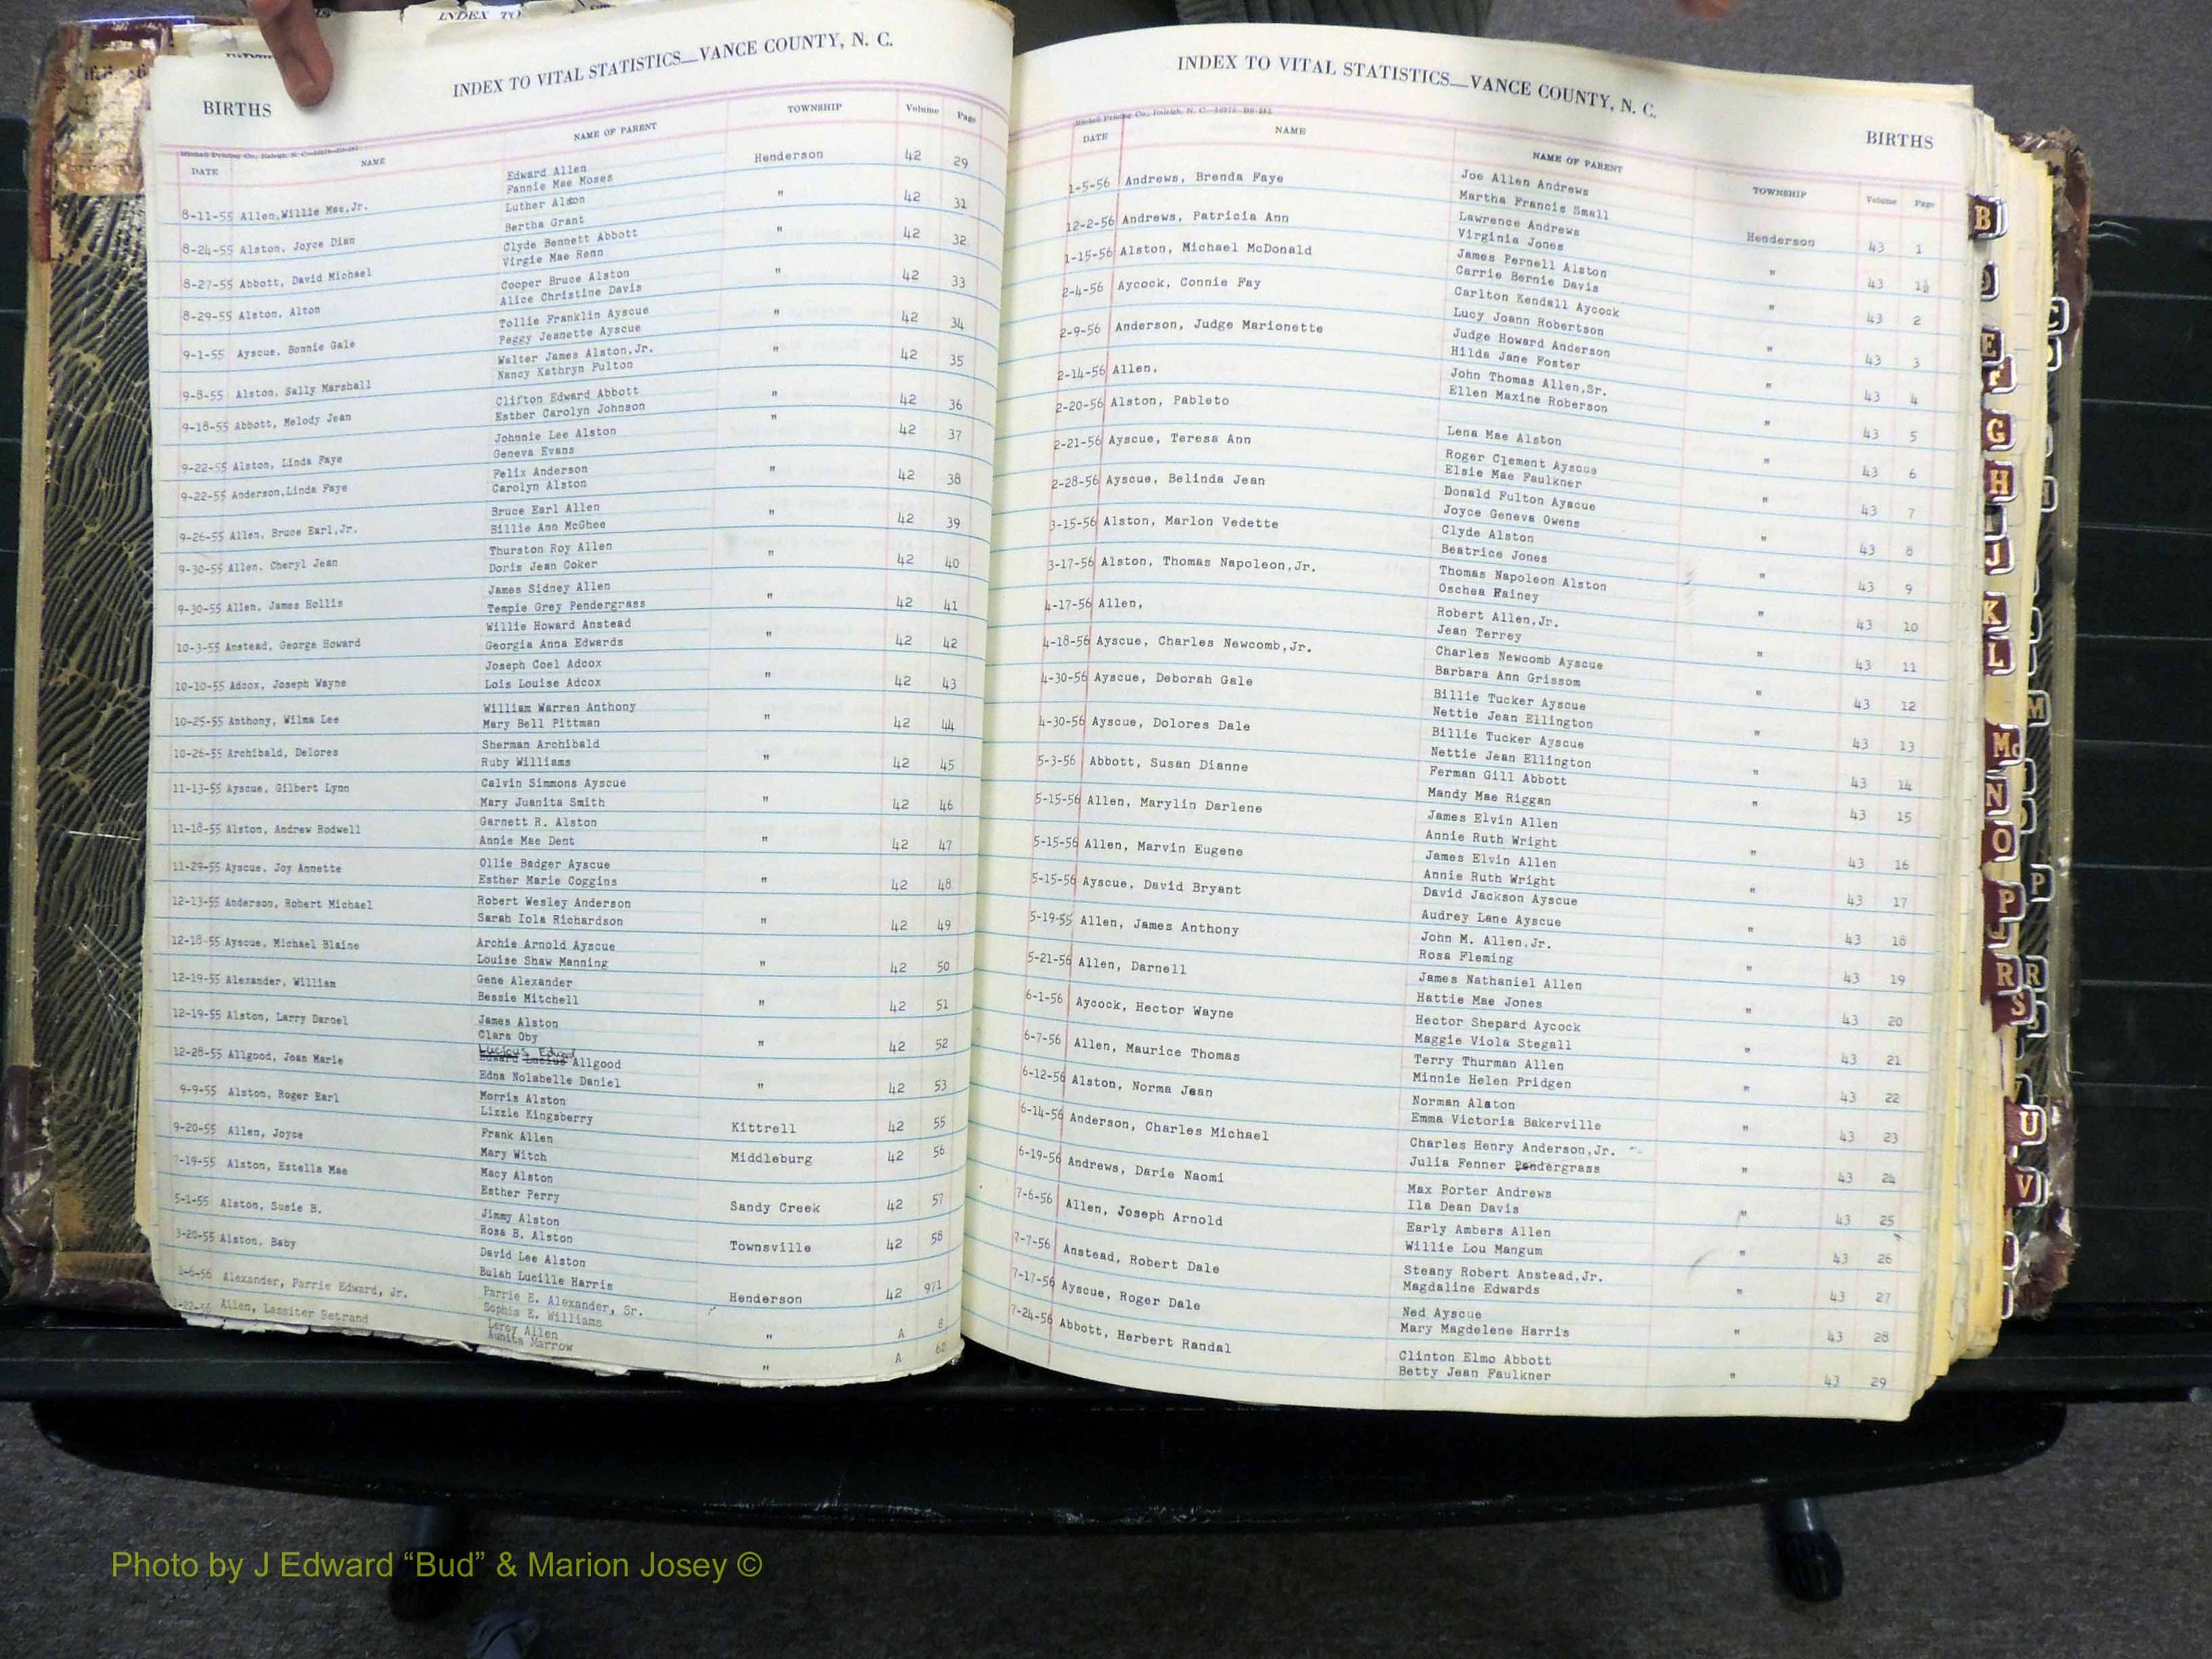 INDEX TO
INDEX TO VITAL STATISTICS—VANCE COUNTY, N. C.
BIRTHS
DATE NAME NAME OF PARENT TOWNSHIP Volume Page
8-11-55 Allen, Willie Mae, Jr. Edward Allen Henderson 42 29
Fannie Mae Moses
8-24-55 Alston, Joyce Dian Luther Alston " 42 31
Bertha Grant
8-27-55 Abbott, David Michael Clyde Bennett Abbott " 42 32
Virgie Mae Renn
8-29-55 Alston, Alton Cooper Bruce Alston " 42 33
Alice Christine Davis
9-1-55 Ayscue, Bonnie Gale Tollie Franklin Ayscue " 42 34
Peggy Jeanette Ayscue
9-8-55 Alston, Sally Marshall Walter James Alston, Jr. " 42 35
Nancy Kathryn Fulton
9-18-55 Abbott, Melody Jean Clifton Edward Abbott " 42 36
Esther Carolyn Johnson
9-22-55 Alston, Linda Faye Johnnie Lee Alston " 42 37
Geneva Evans
9-22-55 Anderson, Linda Faye Felix Anderson " 42 38
Carolyn Alston
9-26-55 Allen, Bruce Earl, Jr. Bruce Earl Allen " 42 39
Billie Ann McGhee
9-30-55 Allen, Cheryl Jean Thurston Roy Allen " 42 40
Doris Jean Coker
9-30-55 Allen, James Hollis James Sidney Allen " 42 41
Tempie Grey Pendergrass
10-3-55 Anstead, George Howard Willie Howard Anstead " 42 42
Georgia Anna Edwards
10-10-55 Adcox, Joseph Wayne Joseph Coel Adcox " 42 43
Lois Louise Adcox
10-25-55 Anthony, Wilma Lee William Warren Anthony " 42 44
Mary Bell Pittman
10-26-55 Archibald, Delores Sherman Archibald " 42 45
Ruby Williams
11-13-55 Ayscue, Gilbert Lynn Calvin Simmons Ayscue " 42 46
Mary Juanita Smith
11-18-55 Alston, Andrew Rodwell Garnett R. Alston " 42 47
Annie Mae Dent
11-29-55 Ayscue, Joy Annette Ollie Badger Ayscue " 42 48
Esther Marie Coggins
12-13-55 Anderson, Robert Michael Robert Wesley Anderson " 42 49
Sarah Iola Richardson
12-18-55 Ayscue, Michael Blaine Archie Arnold Ayscue " 42 50
Louise Shaw Manning
12-19-55 Alexander, William Gene Alexander " 42 51
Bessie Mitchell
12-19-55 Alston, Larry Darnel James Alston " 42 52
Clara Oby
12-28-55 Allgood, Joan Marie Lucious Edward Edward Lucius Allgood " 42 53
Edna Nolabelle Daniel
9-9-55 Alston, Roger Earl Morris Alston Kittrell 42 55
Lizzie Kingsberry
9-20-55 Allen, Joyce Frank Allen Middleburg 42 56
Mary Witch
-19-55 Alston, Estella Mae Macy Alston Sandy Creek 42 57
Esther Perry
5-1-55 Alston, Susie B. Jimmy Alston Townsville 42 58
Rosa B. Alston
3-20-55 Alston, Baby David Lee Alston Henderson 42 971
Bulah Lucille Harris
-6-56 Alexander, Parrie Edward, Jr. Parrie E. Alexander, Sr. " A 8
Sophia E. Williams
-22-56 Allen, Lassiter Betrand Leroy Allen " A 60
Aunita Marrow
INDEX TO VITAL STATISTICS—VANCE COUNTY, N. C.
BIRTHS
DATE NAME NAME OF PARENT TOWNSHIP Volume Page
1-5-56 Andrews, Brenda Faye Joe Allen Andrews Henderson 43 1
Martha Francis Small
12-2-56 Andrews, Patricia Ann Lawrence Andrews " 43 1½
Virginia Jones
1-15-56 Alston, Michael McDonald James Pernell Alston " 43 2
Carrie Bernie Davis
2-4-56 Aycock, Connie Fay Carlton Kendall Aycock " 43 3
Lucy Joann Robertson
2-9-56 Anderson, Judge Marionette Judge Howard Anderson " 43 4
Hilda Jane Foster
2-14-56 Allen, John Thomas Allen, Sr. " 43 5
Ellen Maxine Roberson
2-20-56 Alston, Pableto Lena Mae Alston " 43 6
2-21-56 Ayscue, Teresa Ann Roger Clement Ayscue " 43 7
Elsie Mae Faulkner
2-28-56 Ayscue, Belinda Jean Donald Fulton Ayscue " 43 8
Joyce Geneva Owens
3-15-56 Alston, Marlon Vedette Clyde Alston " 43 9
Beatrice Jones
3-17-56 Alston, Thomas Napoleon, Jr. Thomas Napoleon Alston " 43 10
Oschea Rainey
4-17-56 Allen, Robert Allen, Jr. " 43 11
Jean Terrey
4-18-56 Ayscue, Charles Newcomb, Jr. Charles Newcomb Ayscue " 43 12
Barbara Ann Grissom
4-30-56 Ayscue, Deborah Gale Billie Tucker Ayscue " 43 13
Nettie Jean Ellington
4-30-56 Ayscue, Dolores Dale Billie Tucker Ayscue " 43 14
Nettie Jean Ellington
5-3-56 Abbott, Susan Dianne Ferman Gill Abbott " 43 15
Mandy Mae Riggan
5-15-56 Allen, Marylin Darlene James Elvin Allen " 43 16
Annie Ruth Wright
5-15-56 Allen, Marvin Eugene James Elvin Allen " 43 17
Annie Ruth Wright
5-15-56 Ayscue, David Bryant David Jackson Ayscue " 43 18
Audrey Lane Ayscue
5-19-55 Allen, James Anthony John M. Allen, Jr. " 43 19
Rosa Fleming
5-21-56 Allen, Darnell James Nathaniel Allen " 43 20
Hattie Mae Jones
6-1-56 Aycock, Hector Wayne Hector Shepard Aycock " 43 21
Maggie Viola Stegall
6-7-56 Allen, Maurice Thomas Terry Thurman Allen " 43 22
Minnie Helen Pridgen
6-12-56 Alston, Norma Jean Norman Alston " 43 23
Emma Victoria Bakerville
6-14-56 Anderson, Charles Michael Charles Henry Anderson, Jr. " 43 24
Julia Fenner Pendergrass
6-19-56 Andrews, Darie Naomi Max Porter Andrews " 43 25
Ila Dean Davis
7-6-56 Allen, Joseph Arnold Early Ambers Allen " 43 26
Willie Lou Mangum
7-7-56 Anstead, Robert Dale Steany Robert Anstead, Jr. " 43 27
Magdaline Edwards
7-17-56 Ayscue, Roger Dale Ned Ayscue " 43 28
Mary Magdelene Harris
7-24-56 Abbott, Herbert Randal Clinton Elmo Abbott " 43 29
Betty Jean Faulkner
B
C
E
F
G
H
J
K
L
M
Mc
N
O
P
P
R
R
S
U
V
Photo by J Edward “Bud” & Marion Josey ©